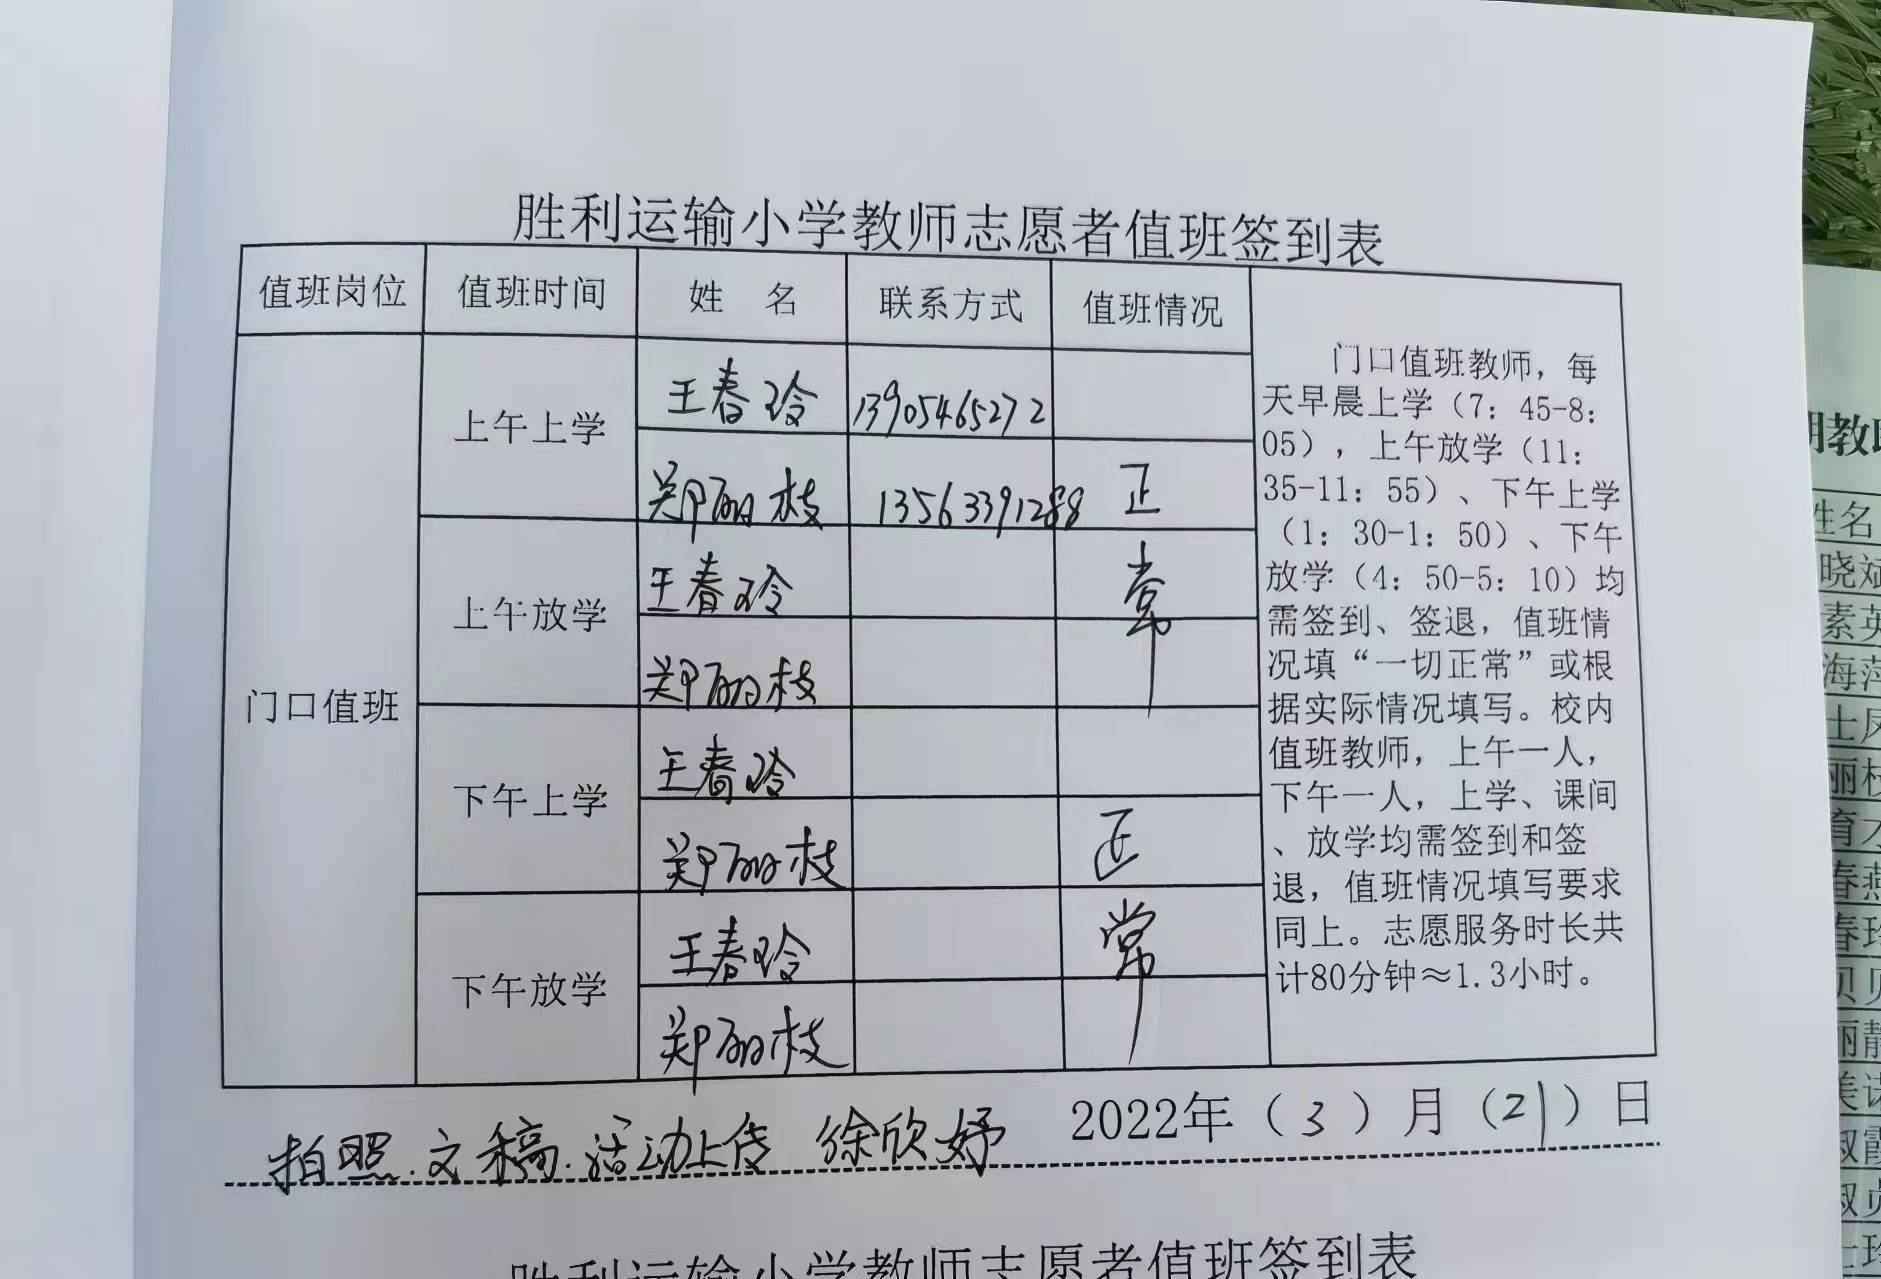 胜利运输小学教师志愿者值班签到表
值班岗位 值班时间 姓 名 联系方式 值班情况
门口值班
上午上学
王春玲 13905465272
郑丽枝 13563391288
正
上午放学
王春玲
常
郑丽枝
下午上学
王春玲
郑丽枝
正
下午放学
王春玲
常
郑丽枝
门口值班教师，每
天早晨上学（7：45-8：
05），上午放学（11：
35-11：55）、下午上学
（1：30-1：50）、下午
放学（4：50-5：10）均
需签到、签退，值班情
况填“一切正常”或根
据实际情况填写。校内
值班教师，上午一人，
下午一人，上学、课间
、放学均需签到和签
退，值班情况填写要求
同上。志愿服务时长共
计80分钟≈1.3小时。
2022年（3）月（21）日
拍照.文稿.活动上传 徐欣妤
胜利运输小学教师志愿者值班签到表
期教
姓名
晓斌
素英
海萍
士凤
丽枝
育才
春燕
春玲
贝贝
丽静
美
淑霞
淑贞